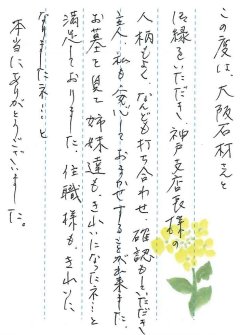 この度は、大阪石材さんと
ご縁をいただき、神戸支店長様の
人柄もよく、なんども打ち合わせ、確認もしていただき
主人、私も安心しておまかせすることが出来ました
お墓を見て姉妹達も、きれいになったネ…と
満足しておりました。住職様も、きれいに
なりましたネ…と
本当にありがとうございました。